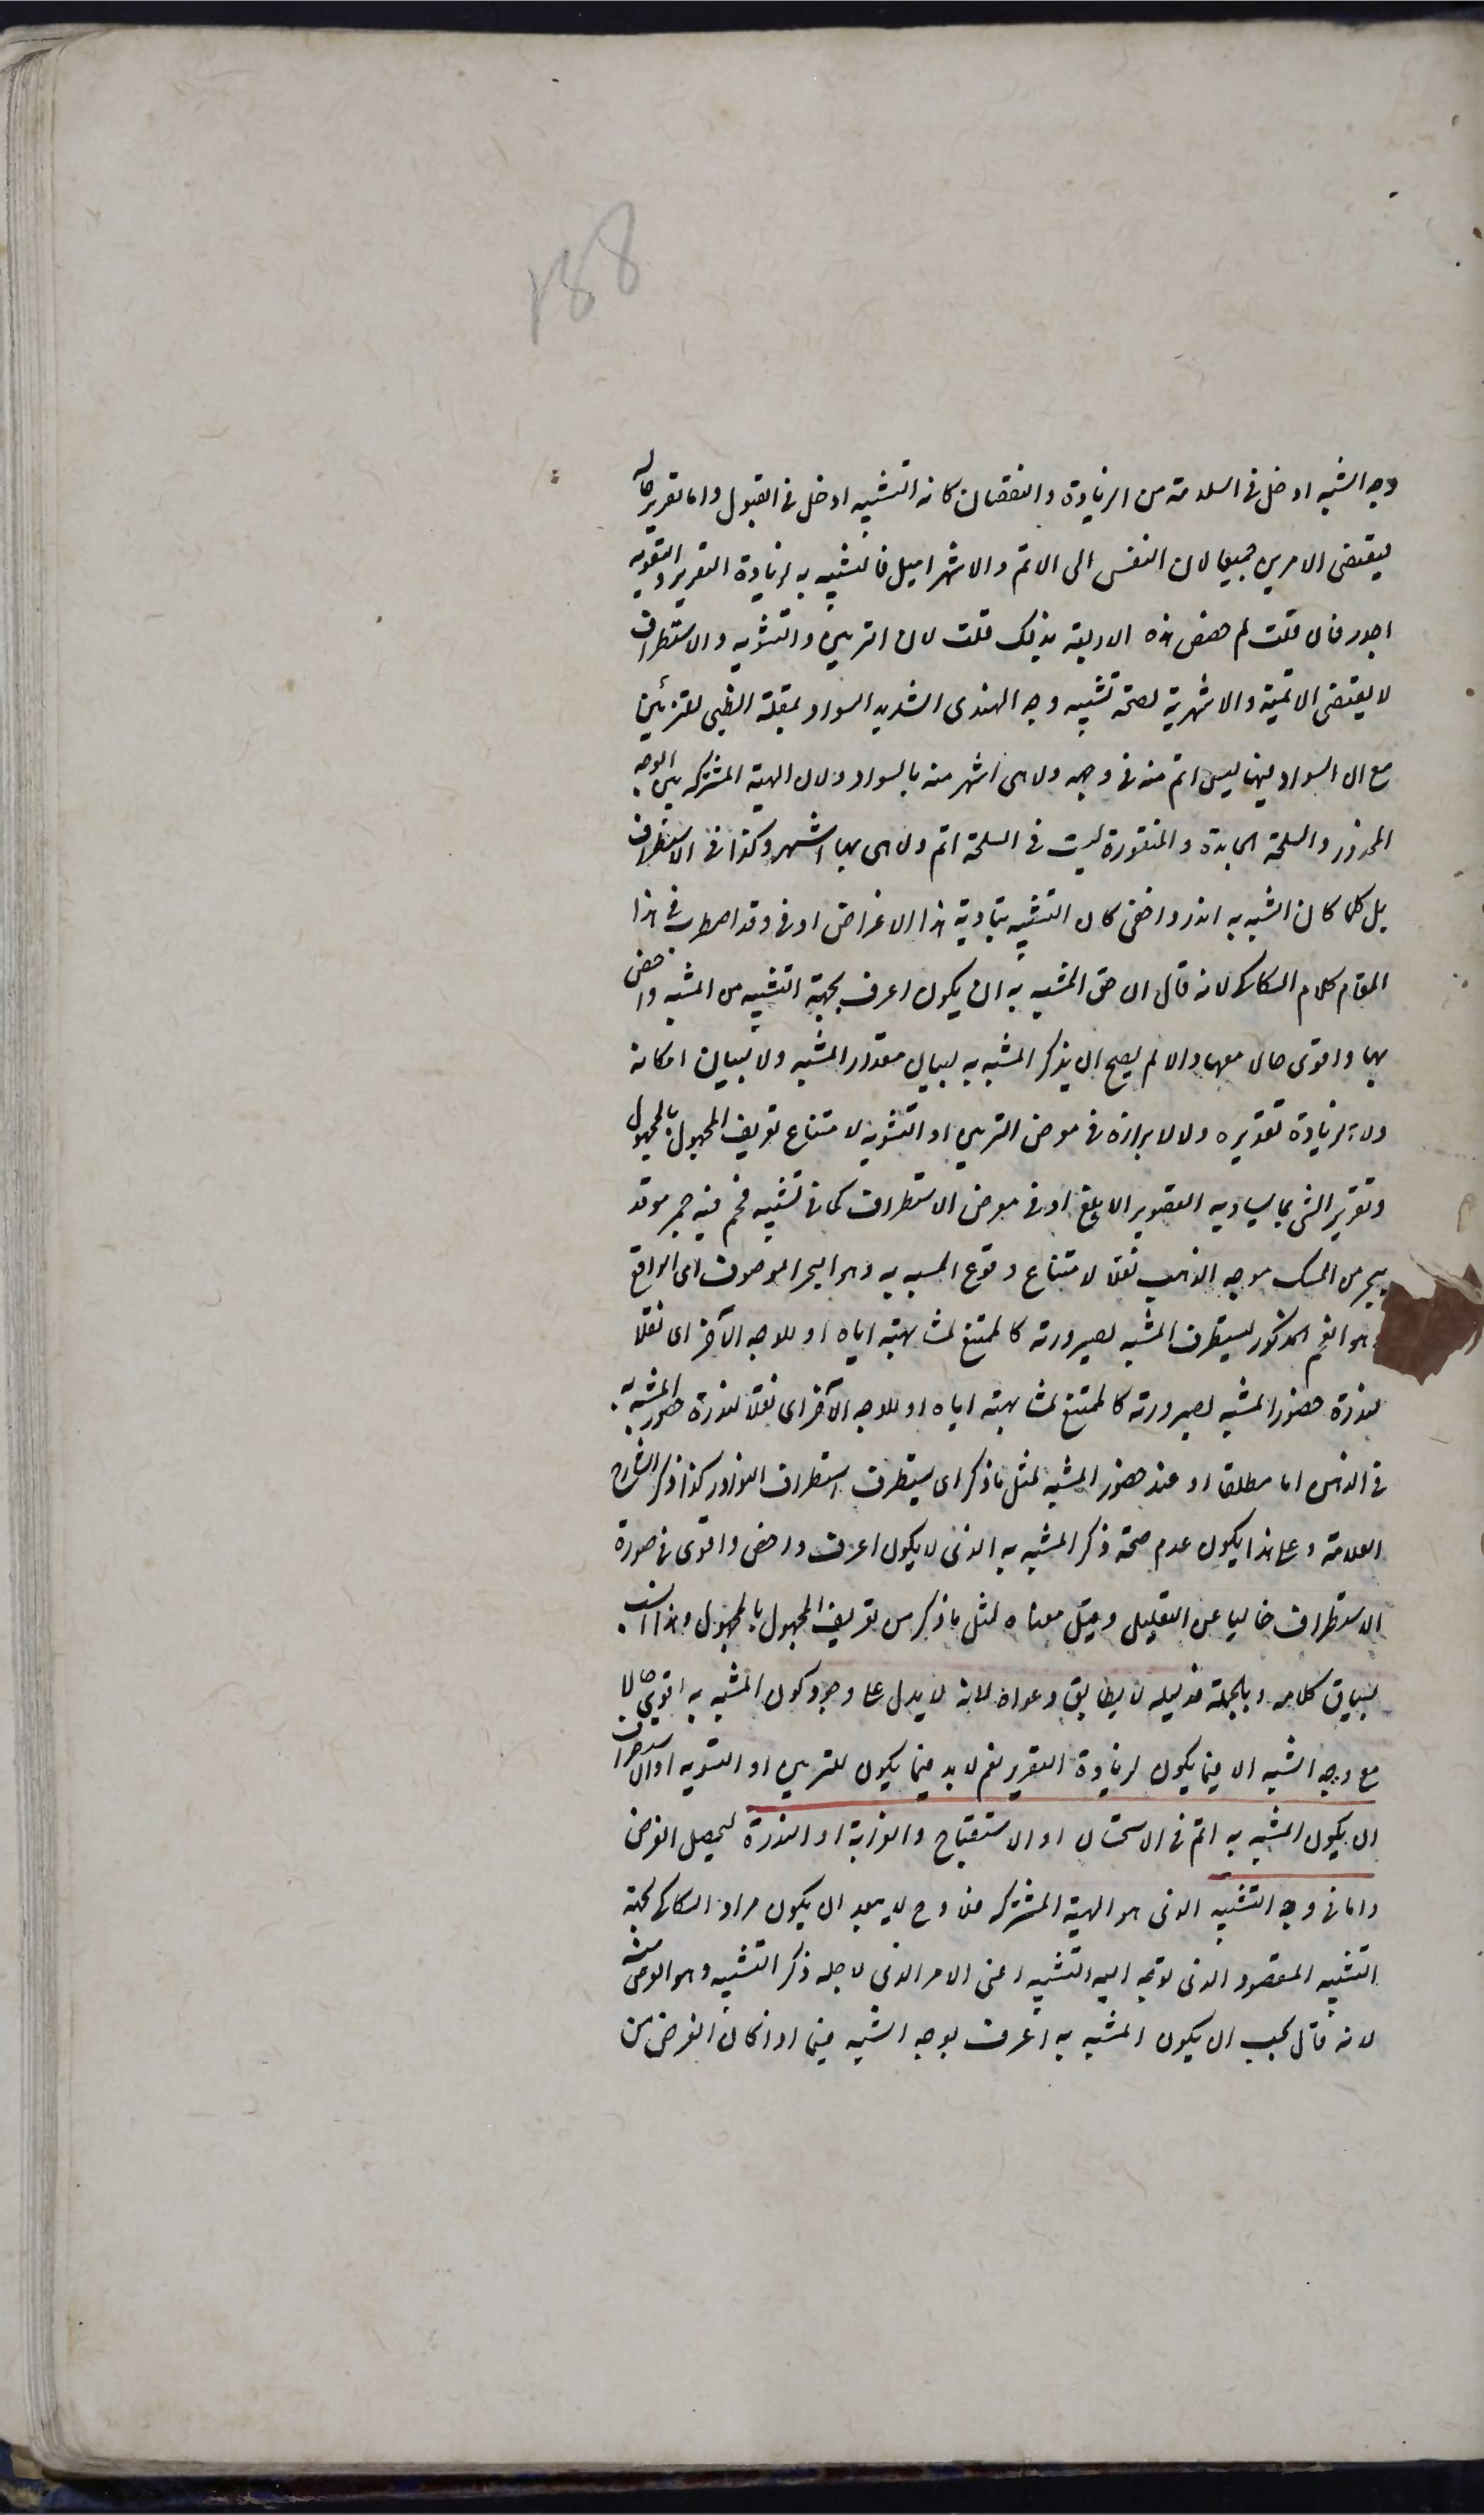 188
وجه الشبه ادخل فى السلامة من الزيادة والنقصان كانه التشبيه ادخل فى القبول واما تقرير حاله
فيقتضى الامرين جميعا لان النفس الى الاتم والاشهر اميل فالتشبيه به لزيادة التقرير والتقوية
اجدر فان قلت لم خصص هذه الاربعة بذلك قلت لان التزيين والتشويه والاستطراف
لا يقتضى الاتمية والاشهرية لصحة تشبيه وجه الهندى الشديد السواد بمقلة الظبى للتزيين
مع ان السواد فيها ليس اتم منه فى وجهه ولا هى اشهر منه بالسواد ولان الهيئة المشتركة بين الوجه
المجدور والسلحة الجامدة والمنقورة ليست فى السلحة اتم ولا هى بها اشهر وكذا فى الاستطراف
بل كلما كان المشبه به اندر واخفى كان التشبيه بتادية هذا الاغراض اوفى وقد اضطرب فى هذا
المقام كلام السكاكى لانه قال ان حق المشبه به ان يكون اعرف بجهة التشبيه من المشبه واخص
بها واقوى حالا معها والا لم يصح ان يذكر المشبه به لبيان مقدار المشبه ولا لبيان امكانه
ولا لزيادة تقريره ولا لابرازه فى معرض التزيين او التشويه لامتناع تعريف المجهول بالمجهول
وتقرير الشئ بما يساويه التقرير الابلغ او فى معرض الاستطراف كما فى تشبيه فحم فيه جمر موقد
ببحر من المسك موجه الذهب نقلا لامتناع وقوع المشبه به وهو البحر الموصوف الى الواقع
وهو الفحم المذكور ليستطرف المشبه لصيرورته كالممتنع لمشابهته اياه او للوجه الآخر اى نقلا
لندرة حضور المشبه لصيرورته كالممتنع لمشابهته اياه او للوجه الآخر اى نقلا لندرة حضور المشبه به
فى الذهن اما مطلقا او عند حضور المشبه لمثل ما ذكر اى ليستطرف استطراف النوادر كذا ذكر الشارح
العلامة وعلى هذا يكون عدم صحة ذكر المشبه به الذى لا يكون اعرف واخص واقوى فى صورة
الاستطراف خاليا عن التعليل وقيل معناه لمثل ما ذكر من تعريف المجهول بالمجهول وهذا انسب
بسياق كلامه وبالجملة فدليله لا يطابق دعواه لانه لا يدل على وجوب كون المشبه به اقوى حالا
مع وجه الشبه الا فيما يكون لزيادة التقرير نعم لا بد فيما يكون للتزيين او التشويه او الاستطراف
ان يكون المشبه به اتم فى الاستحسان او الاستقباح والغرابة او الندرة ليحصل الغرض
واما فى وجه التشبيه الذى هو الهيئة المشتركة فلا وح لا يبعد ان يكون مراد السكاكى بجهة
التشبيه المقصود الذى توجه اليه التشبيه اعنى الامر الذى لاجله ذكر التشبيه وهو الغرض منه
لانه قال يجب ان يكون المشبه به اعرف بوجه الشبه فيما اذا كان الغرض من